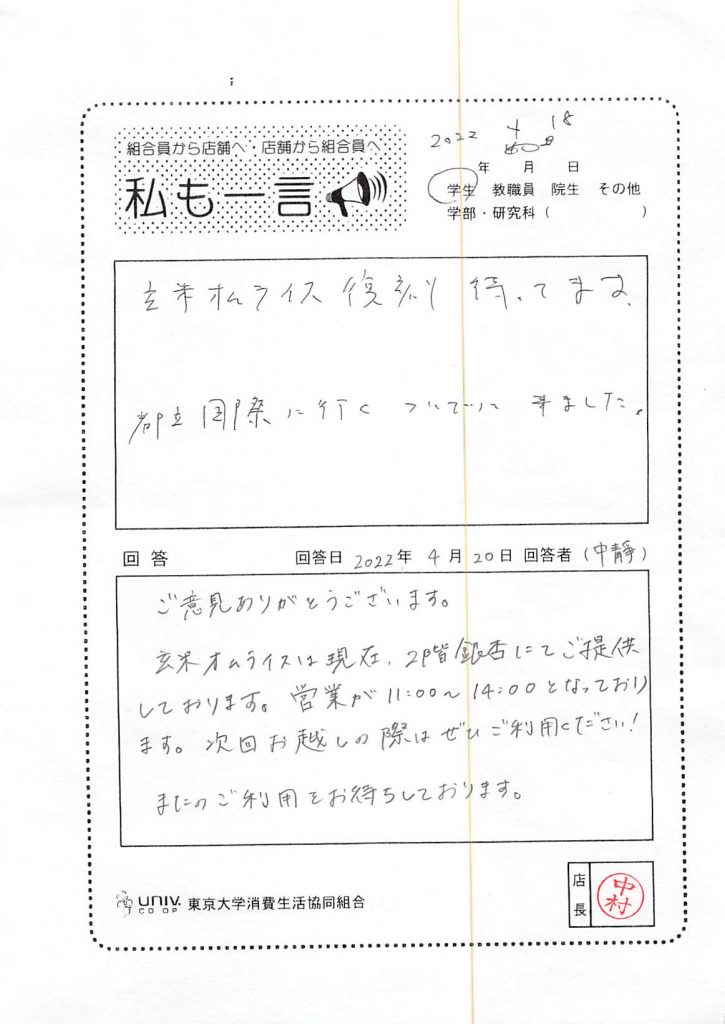 組合員から店舗へ・店舗から組合員へ
私も一言
2022 4 18
年 月 日
学生 教職員 院生 その他
学部・研究科( )
玄米オムライス 復刻 待ってます。
都立国際に行く ついでに 来ました。
回答 回答日 2022年 4月20日 回答者(中靜)
ご意見ありがとうございます。
玄米オムライスは現在、2階銀杏にてご提供
しております。営業が11:00~14:00となっており
ます。次回お越しの際はぜひご利用ください!
またのご利用をお待ちしております。
UNIV.
CO-OP
東京大学消費生活協同組合
店長
中村